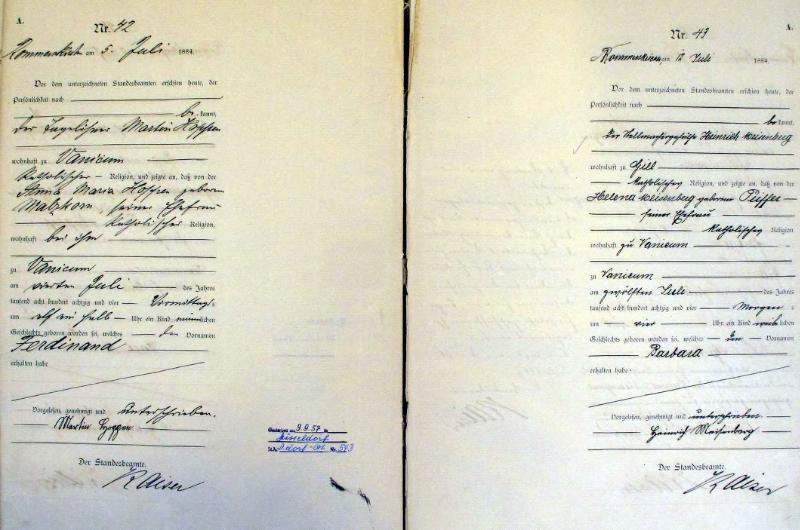 A.
Nr. 42
Rommerskirchen am 5. Juli 1884.
Vor dem unterzeichneten Standesbeamten erschien heute, der
Persönlichkeit nach
bekannt,
der Martin Hoppen
wohnhaft zu Vanicum
katholischer Religion, und zeigte an, daß von der
Anna Maria Hoppen geborenen
Malzkorn, seiner Ehefrau
katholischer Religion,
wohnhaft bei ihm
zu Vanicum
am vierten Juli des Jahres
tausend acht hundert achtzig und vier Vormittags
um elf ein halb Uhr ein Kind männlichen
Geschlechts geboren worden sei, welches den Vornamen
Ferdinand
erhalten habe
Vorgelesen, genehmigt und unterschrieben.
Martin Hoppen
Der Standesbeamte.
Kaiser
Gestorben am 9.9.57 in
Düsseldorf
Nr. 543
A.
Nr. 43
Rommerskirchen am 12 Juli 1884.
Vor dem unterzeichneten Standesbeamten erschien heute, der
Persönlichkeit nach
bekannt,
der Stellmachergehülfe Heinrich Meisenberg
wohnhaft zu Gill
katholischer Religion, und zeigte an, daß von der
Helena Meisenberg geborenen
seiner Ehefrau
katholischer Religion
wohnhaft zu Vanicum
zu Vanicum
am zwölften Juli des Jahres
tausend acht hundert achtzig und vier Morgens
um vier Uhr ein Kind weiblichen
Geschlechts geboren worden sei, welches Vornamen
Barbara
erhalten habe
Vorgelesen, genehmigt und unterschrieben
Heinrich Meisenberg
Der Standesbeamte.
Kaiser